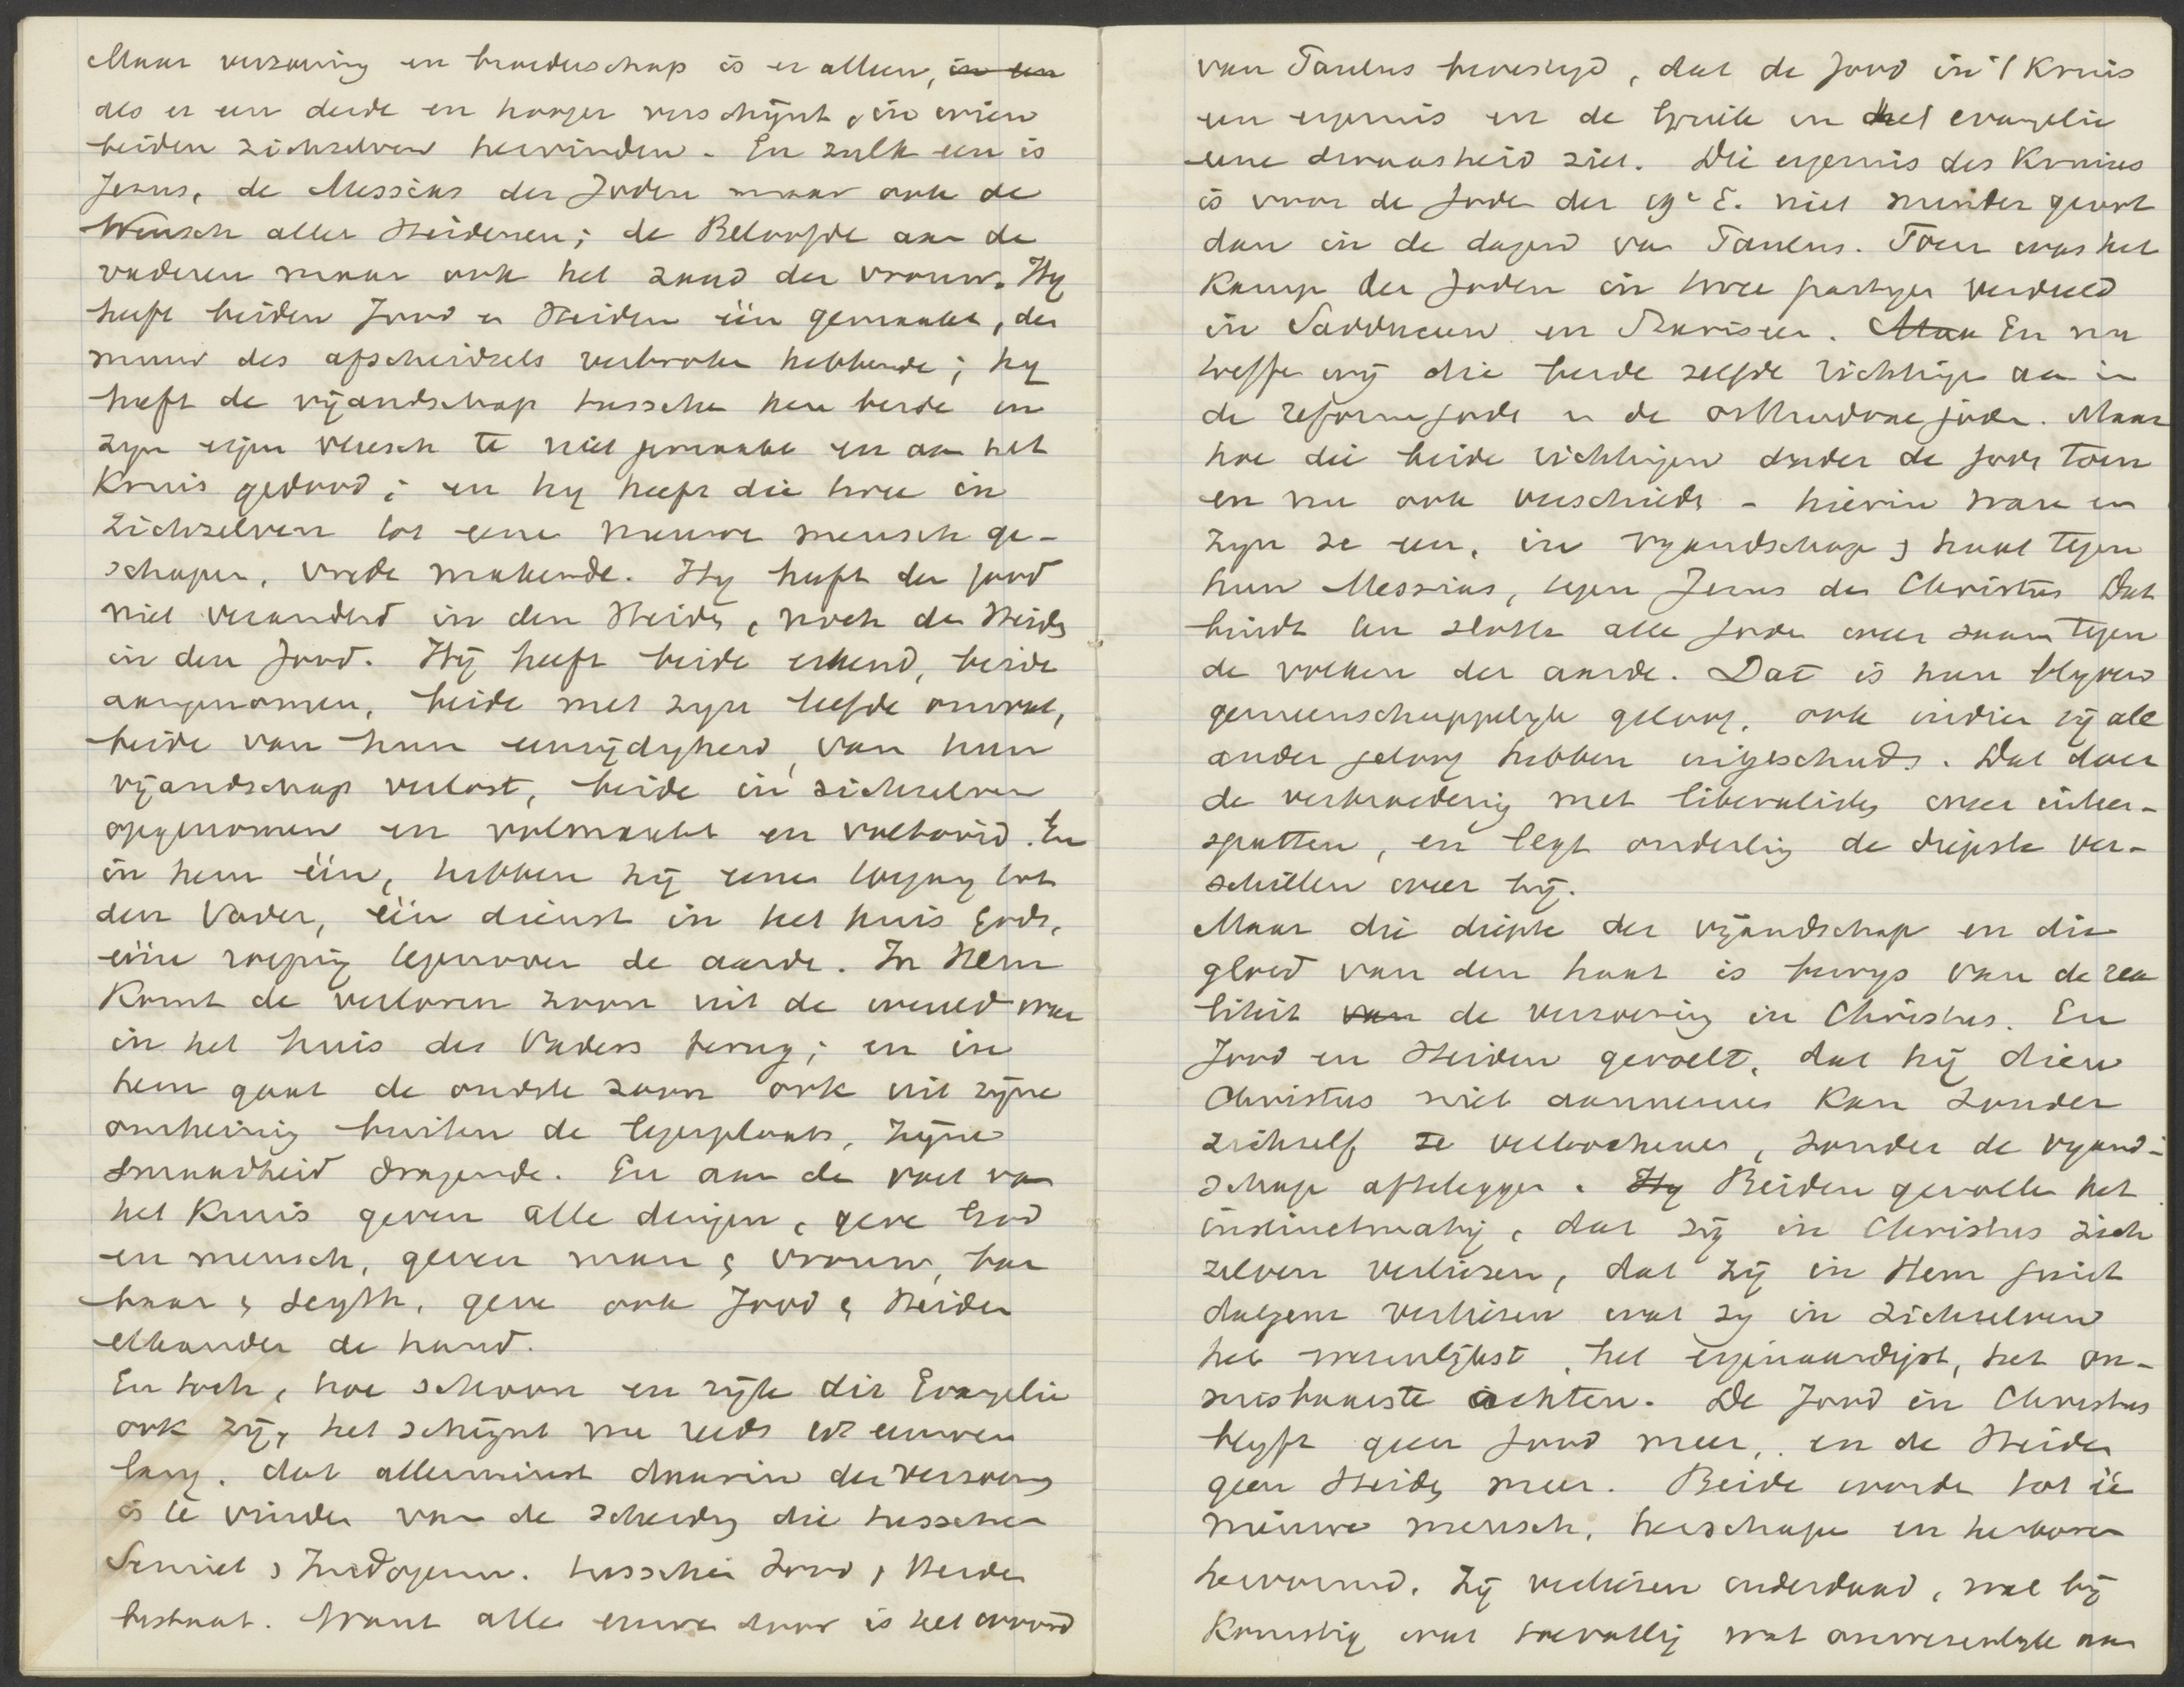 Maar verzoening en broederschap is er alleen, in een
als er een derde en hooger verschijnt, in wien
beiden zichzelven hervinden. En zulk een is
Jezus, de Messias der Joden maar ook de
Wensch aller Heidenen; de Beloofde aan de
vaderen maar ook het zaad der vrouw. Hy
heeft beiden Jood en Heiden één gemaakt, den
muur des afscheidsels verbroken hebbende; hy
heeft de vijandschap tusschen hen beide in
zyn eigen vleesch te niet gemaakt en aan het
Kruis gedood; en hy heeft die twee in
zichzelven tot eene nieuwe mensch ge-
schapen, vrede makende. Hy heeft den Jood
niet veranderd in den Heiden, noch den Heiden
in den Jood. Hij heeft beide erkend, beide
aangenomen, beide met zyn liefde omvat,
beide van hun eenzijdigheid, van hun
vijandschap verlost, beide in zichzelven
opgenomen en volmaakt en voltooid. En
in hem één, hebben zij eenen toegang tot
den Vader, één dienst in het huis Gods,
eéne roeping tegenover de aarde. In Hem
Komt de verloren zoon uit de wereld weer
in het huis des Vaders terug; en in
hem gaat de oudste zoon ook uit zijne
omheining buiten de legerplaats, zijne
smaadheid dragende. En aan de voet van
het Kruis geven alle dingen, geve God
en mensch, geven man & vrouw, bar
baar & Scyth, geve ook Jood & Heiden
elkander de hand.
En toch, hoe schoon en rijk dit Evangelie
ook zij, het schijnt nu reeds eeuwen
lang, dat allerminst daarin de verzoening
is te vinden van de scheiding die tusschen
Semiet & Indogerm. tusschen Jood & Heiden
bestaat. Want alle eeuwen door is het woord
van Paulus bevestigd, dat de Jood in 't Kruis
een ergernis en de Griek in het evangelie
eene dwaasheid ziet. Die ergernis des Kruises
is voor de Joden der 19e E. niet minder groot
dan in de dagen van Paulus. Toen was het
Kamp der Joden in twee partyen verdeeld
in Sadduceen en Farizeen. Maa En nu
treffen wij die beide zelfde richtingen aan in
de reformjoden en de orthodoxe joden. Maar
hoe die beide richtingen onder de joden toen
en nu ook verschilden - hierin waren en
zyn ze een, in vyandschap & haat tegen
hun Messias, tegen Jezus den Christus Dat
bindt ten slotte alle joden weer saam tegen
de volken der aarde. Dat is hun blyvend
gemeenschappelyk geloof, ook indien zij alle
ander geloof hebben uitgeschud. Dat doet
de verbroedering met liberalisten weer uiteen-
spatten, en legt onderling de diepste ver-
schillen weer bij.
Maar die diepte der vyandschap en die
gloed van den haat is bewys van de rea
liteit van de verzoening in Christus. En
Jood en Heiden gevoelt, dat hij dien
Christus niet aannemen kan zonder
zichzelf te verloochenen, zonder de vyand-
schap afteleggen. Hy Beiden gevoelen het
instinctmatig, dat zij in Christus zich
zelven verliezen, dat zij in Hem juist
datgene verliezen wat zy in zichzelven
het wezenlijkst, het eigenaardigst, het on-
misbaarste achten. De Jood in Christus
blyft geen Jood meer, en de Heiden
geen Heiden meer. Beide worden tot één
nieuwe mensch, herschapen en herboren
hervormd. Zij verliezen inderdaad, wat bij
Komstig wat toevallig wat onwezenlyk aan